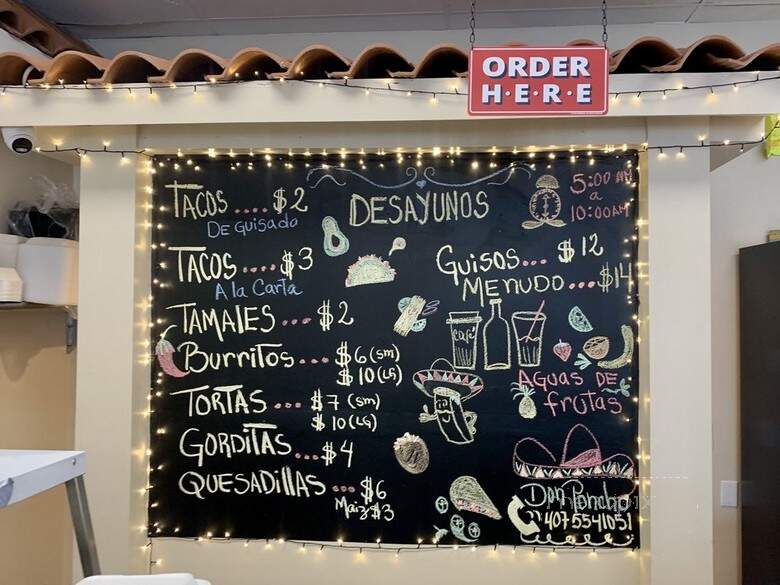 ORDER
H·E·R·E
TACOS.... $2
De Guisado
TACOS.... $3
A la Carta
TAMALES... $2
Burritos... $6 (sm)
$10 (LG)
TORTAS... $7 (sm)
$10 (LG)
GORDITAS... $4
QUESADILLAS... $6
Maiz $3
DESAYUNOS
5:00 AM
a
10:00AM
Guisos... $12
MENUDO... $14
café
AGUAS DE
frutas
Don Poncho
407 5541051